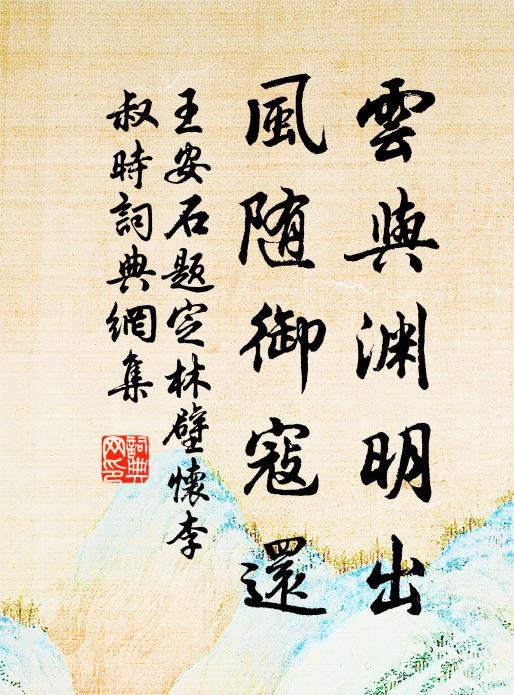 雲與淵明出
風随御寇還
王安石题定林壁懷李
叔時詞典網集
詞典
网印